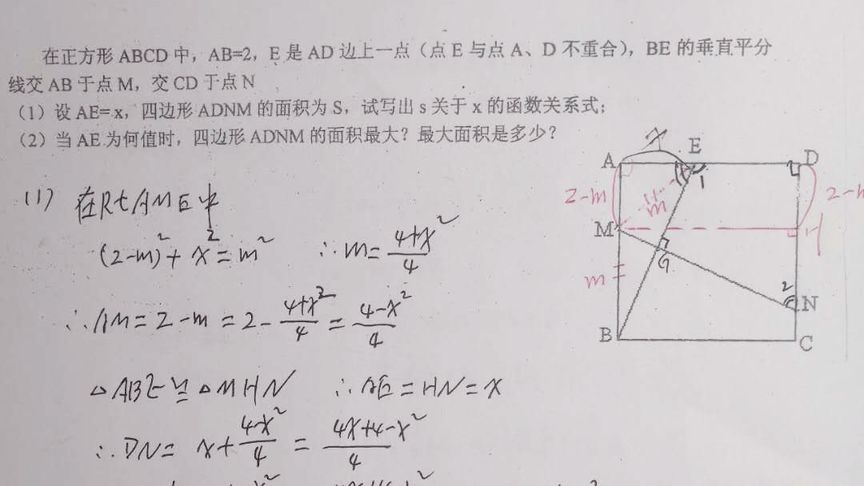 在正方形 ABCD 中，AB=2，E 是 AD 边上一点（点 E 与点 A、D 不重合），BE 的垂直平分
线交 AB 于点 M，交 CD 于点 N
（1）设 AE= x，四边形 ADNM 的面积为 S，试写出 s 关于 x 的函数关系式；
（2）当 AE 为何值时，四边形 ADNM 的面积最大？最大面积是多少？
x
A E D
1
2-m m 2-
M H
G
m
2
N
B C
(1) 在Rt△AME中
(2-m)²+x²=m² ∴m=(4+x²)/4
∴AM=2-m=2-(4+x²)/4=(4-x²)/4
△ABE≌△MHN ∴AE=HN=x
∴DN=x+(4-x²)/4=(4x+4-x²)/4